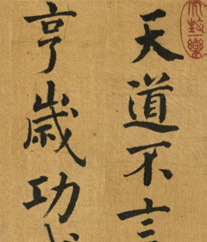 天道不言
亨歲功